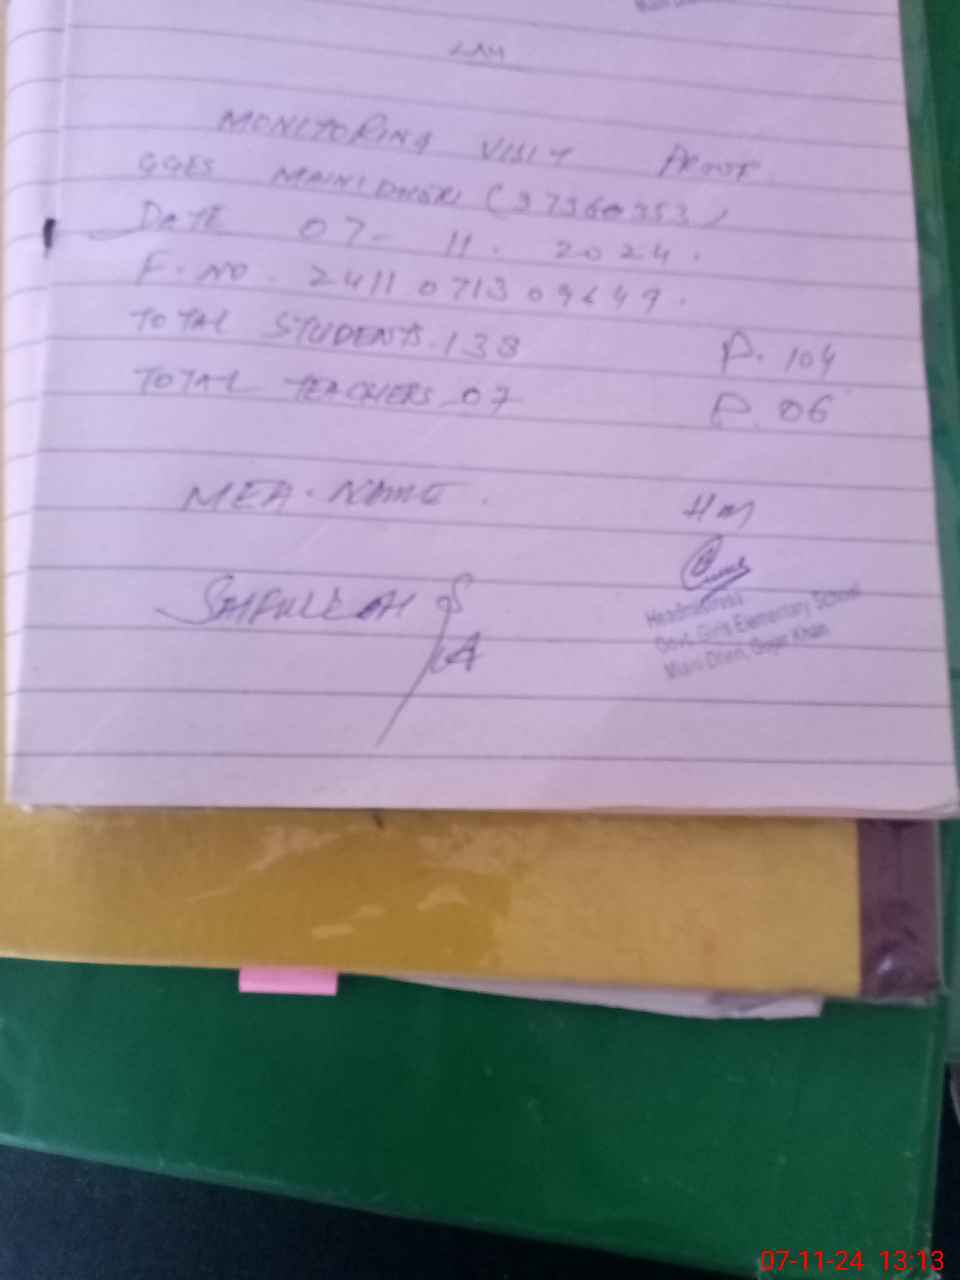 MONITORING VISIT PROOF
GGES MAINI DHERI (37360353)
DATE 07-11.2024.
F.NO. 2411071309649.
TOTAL STUDENTS.138 P. 104
TOTAL TEACHERS 07 P. 06
MEA.NAME. HM
SAIFULLAH
Headmistress
Govt. Girls Elementary School
Maini Dheri, Gujar Khan
07-11-24 13:13